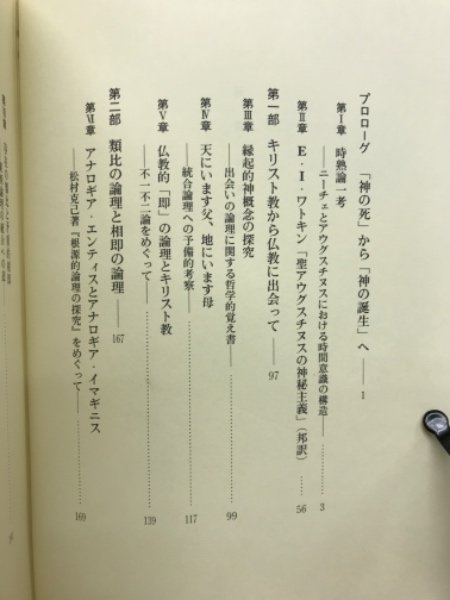 プロローグ 「神の死」から「神の誕生」へ——1
第Ⅰ章 時熟論一考
——ニーチェとアウグスチヌスにおける時間意識の構造——……3
第Ⅱ章 E・I・ワトキン「聖アウグスチヌスの神秘主義」(邦訳)……56
第一部 キリスト教から仏教に出会って——97
第Ⅲ章 縁起的神概念の探究
——出会いの論理に関する哲学的覚え書——……99
第Ⅳ章 天にいます父、地にいます母
——統合論理への予備的考察——……117
第Ⅴ章 仏教的「即」の論理とキリスト教
——不一不二論をめぐって——……139
第二部 類比の論理と相即の論理——167
第Ⅵ章 アナロギア・エンティスとアナロギア・イマギニス
——松村克己著『根源的論理の探究』をめぐって——……169